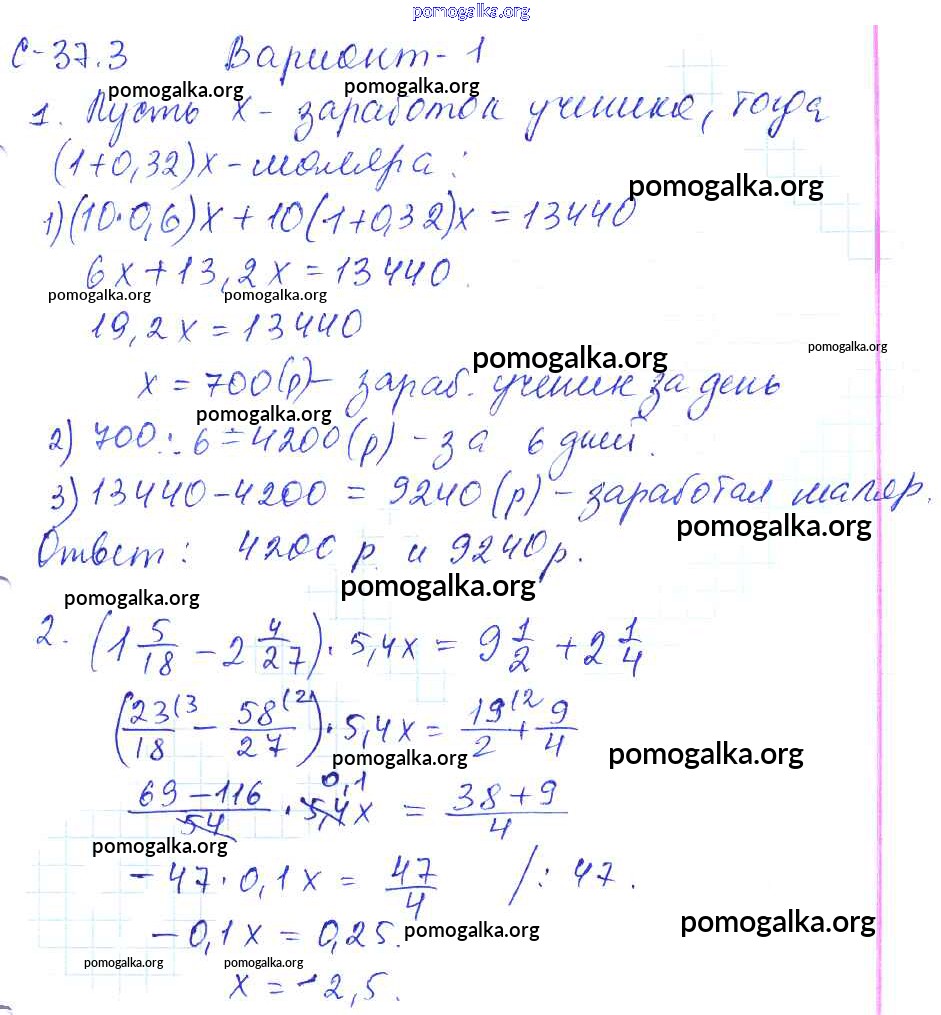 pomogalka.org
С-37.3 Вариант-1
pomogalka.org pomogalka.org
1. Пусть x - заработок ученика, тогда
(1+0,32)x - маляра:
pomogalka.org
1) (10·0,6)x + 10(1+0,32)x = 13440
6x + 13,2x = 13440.
pomogalka.org pomogalka.org
19,2x = 13440
pomogalka.org
pomogalka.org
x = 700(р) - зараб. ученик за день
pomogalka.org
2) 700 : 6 = 4200(р) - за 6 дней.
3) 13440 - 4200 = 9240(р) - заработал маляр.
pomogalka.org
Ответ: 4200 р и 9240 р.
pomogalka.org
pomogalka.org
2. (1 5/18 - 2 4/27) · 5,4x = 9 1/2 + 2 1/4
(23/18 (3 - 58/27 (2) · 5,4x = 19/2 (2 + 9/4
pomogalka.org pomogalka.org
(69-116)/54 · 5,4x 0,1 = (38+9)/4
pomogalka.org
-47 · 0,1x = 47/4 /: 47.
-0,1x = 0,25.
pomogalka.org pomogalka.org
pomogalka.org pomogalka.org
x = -2,5.